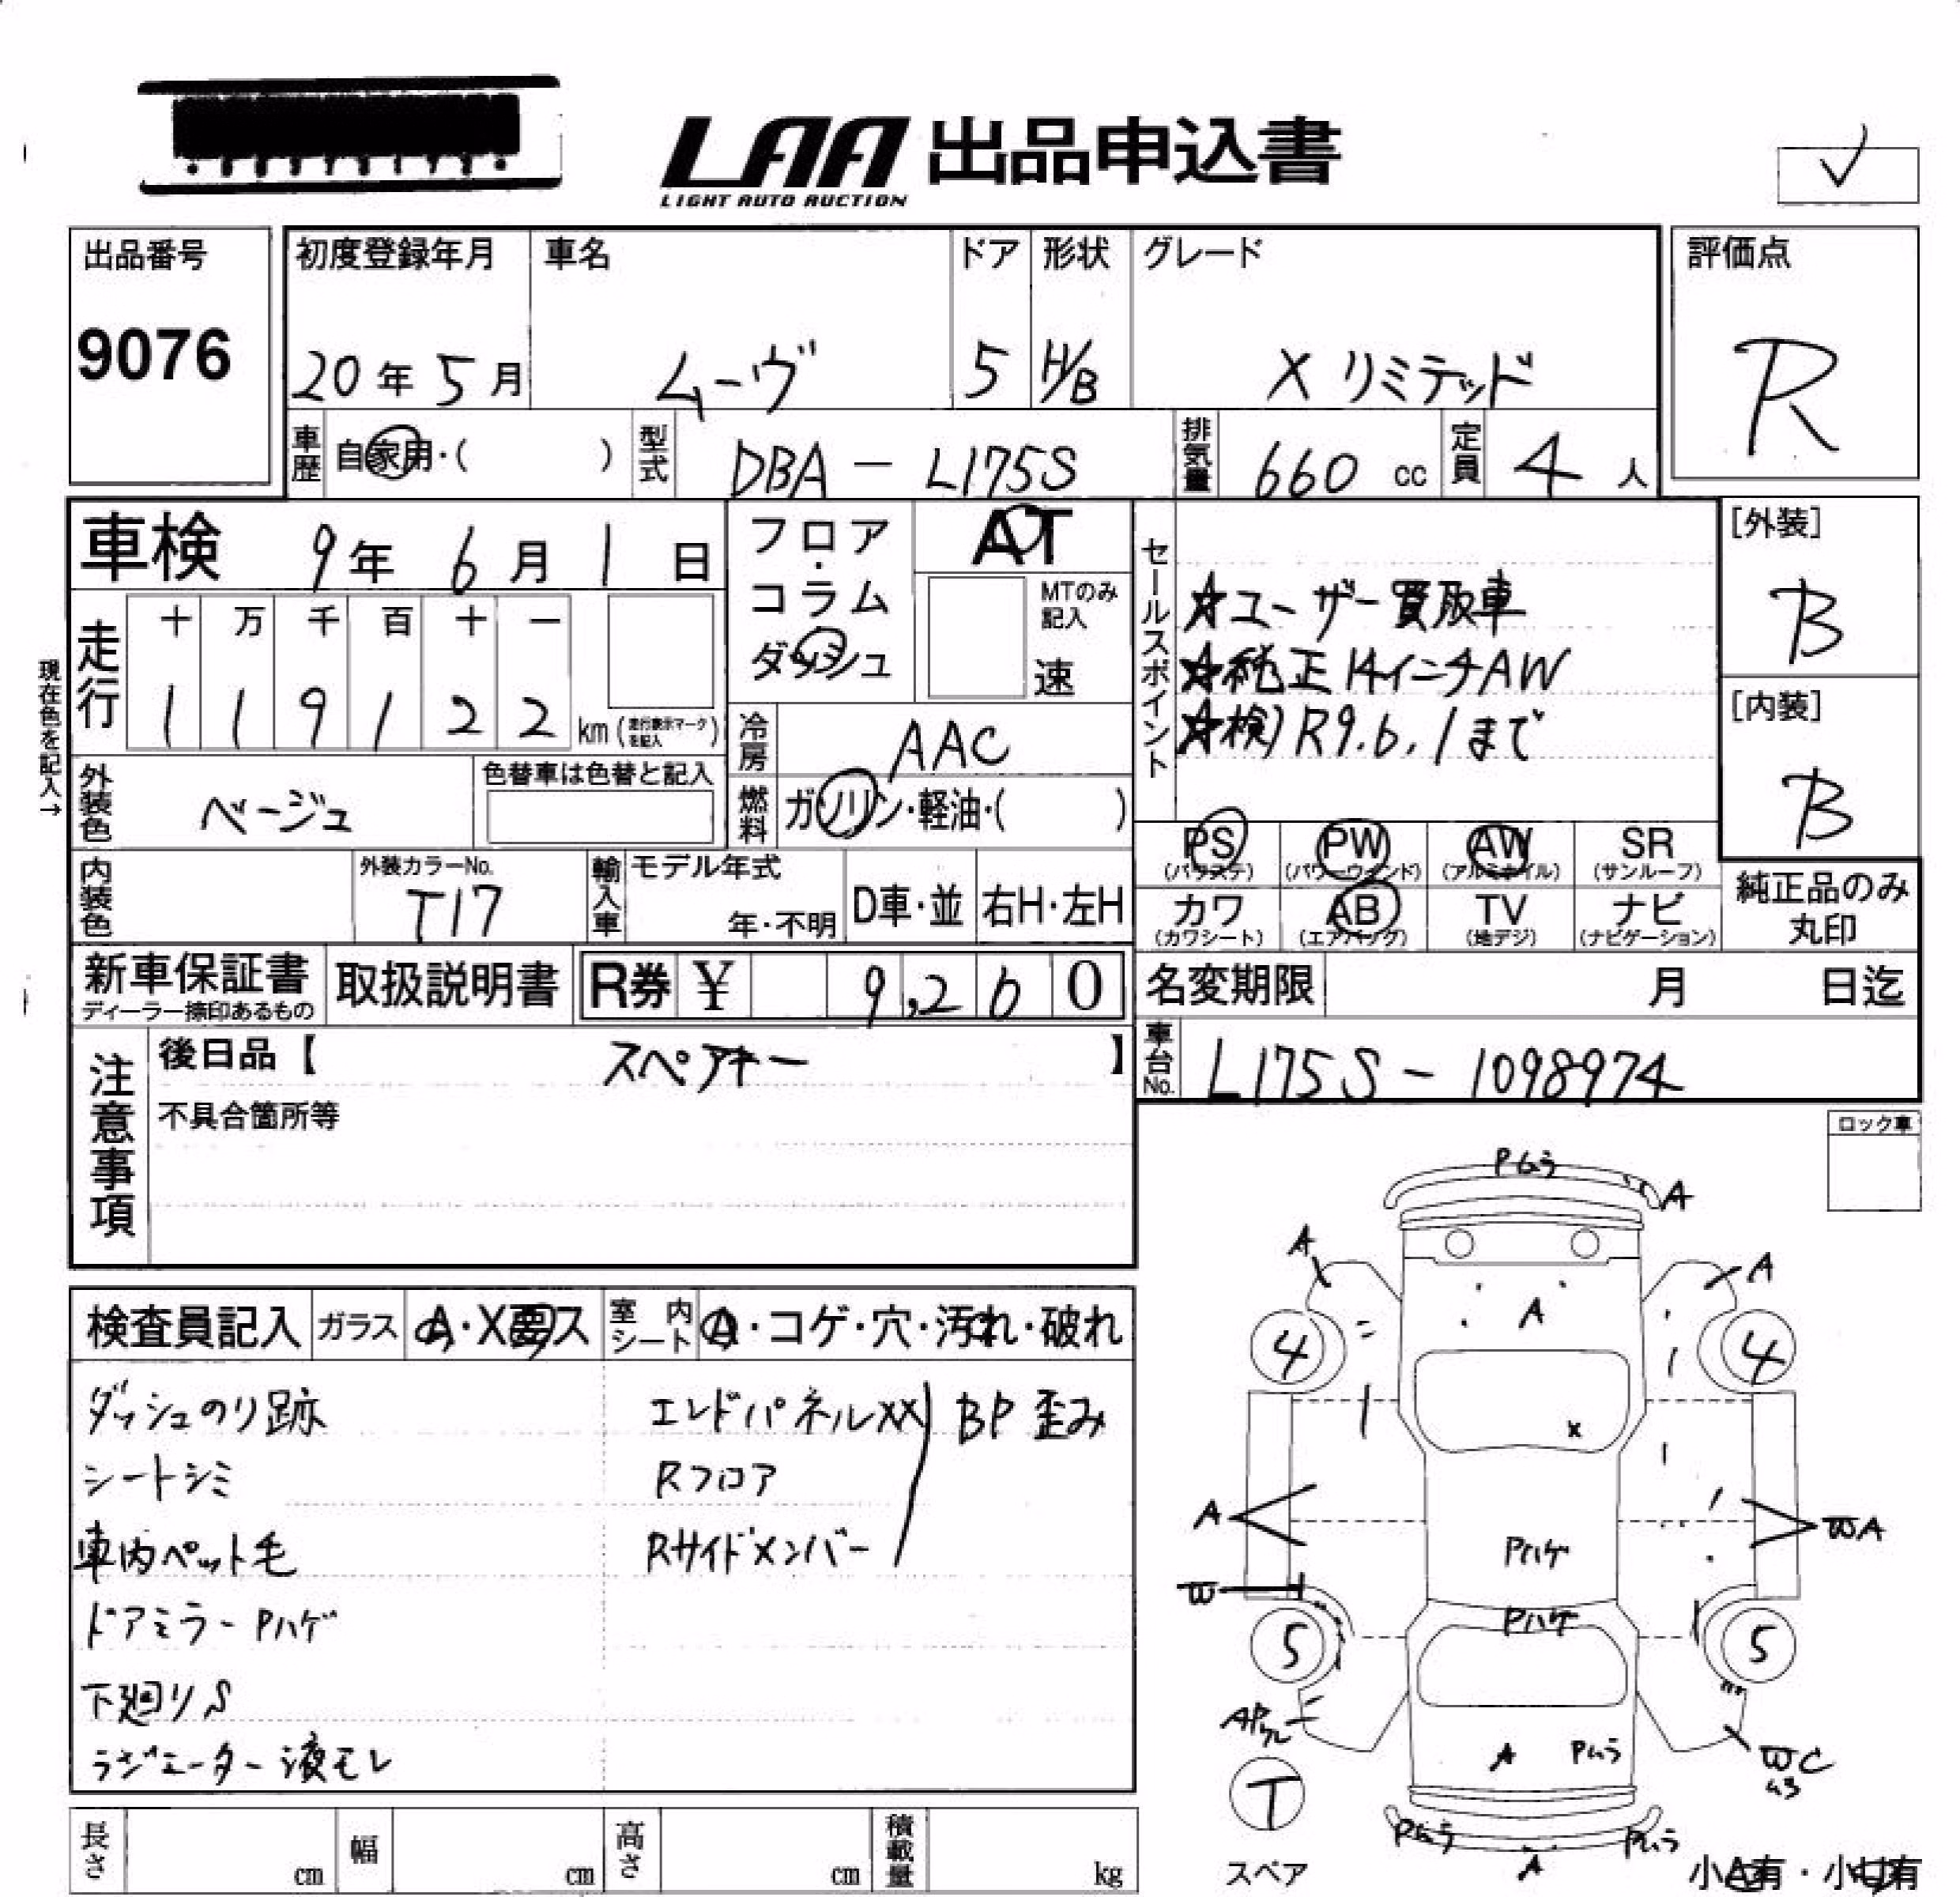 LAA 出品申込書
LIGHT AUTO AUCTION
出品番号
9076
初度登録年月
20年5月
車名
ムーヴ
ドア
5
形状
H/B
グレード
X リミテッド
評価点
R
車歴
自家用・( )
型式
DBA - L175S
排気量
660 cc
定員
4 人
車検 9年 6月 1日
フロア・コラム ダッシュ
AT
MTのみ記入
速
セールスポイント
☆ユーザー買取車
☆純正14インチAW
☆検)R9.6.1まで
[外装]
B
[内装]
B
現在色を記入→
走行
十 万 千 百 十 一
1 1 9 1 2 2 km (走行表示マークを記入)
冷房
AAC
外装色
ベージュ
色替車は色替と記入
燃料
ガソリン・軽油・( )
PS (パワステ)
PW (パワーウィンド)
AW (アルミホイル)
SR (サンルーフ)
カワ (カワシート)
AB (エアバッグ)
TV (地デジ)
ナビ (ナビゲーション)
純正品のみ丸印
内装色
外装カラーNo.
T17
輸入車
モデル年式
年・不明
D車・並
右H・左H
新車保証書
ディーラー捺印あるもの
取扱説明書
R券 ¥ 9,260
名変期限 月 日迄
注意事項
後日品【 スペアキー 】
不具合箇所等
車台No.
L175S - 1098974
ロック車
検査員記入
ガラス
A・X要ス
室内シート
A・コゲ・穴・汚れ・破れ
ダッシュのり跡
シートシミ
車内ペット毛
ドアミラーPハゲ
下廻りS
ラジエーター液モレ
エンドパネルXX
Rフロア
Rサイドメンバー
BP歪み
Pムラ
A
A
A
A
4
4
X
A
WA
Pハゲ
W
Pハゲ
5
5
A
Pムラ
WC
T
スペア
Pムラ
A
Pムラ
小A有・小U有
長さ cm
幅 cm
高さ cm
積載量 kg